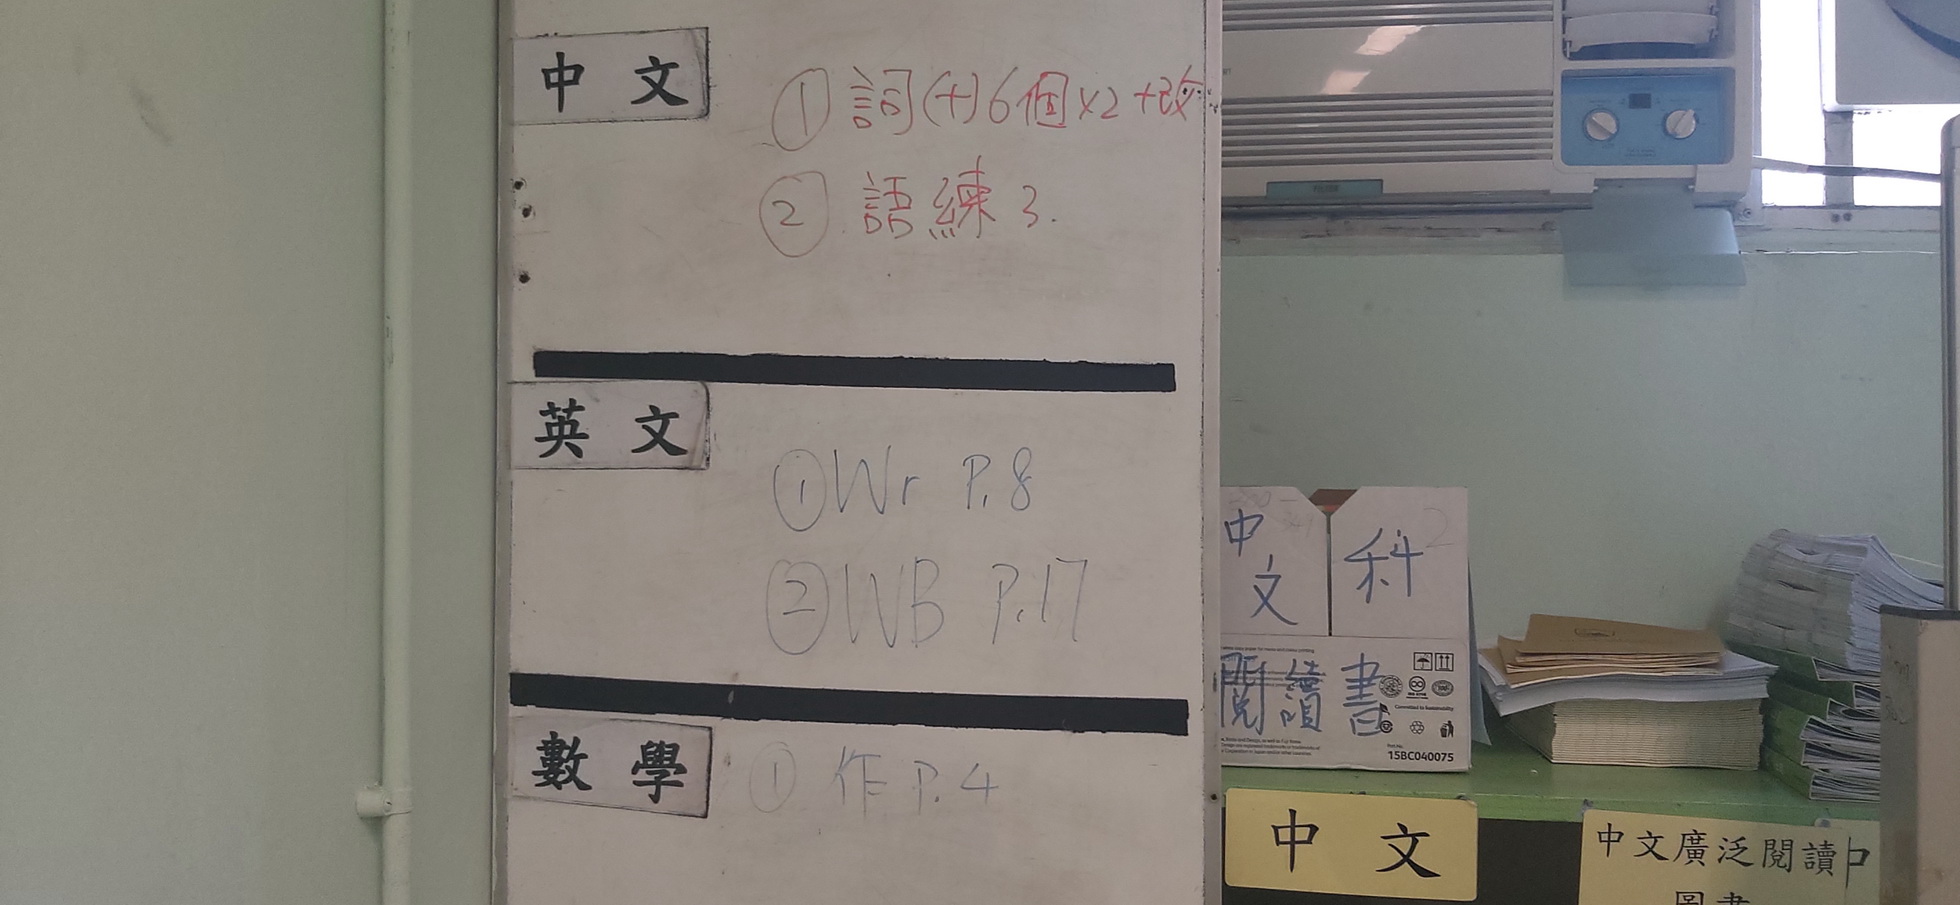 中文
① 詞(十)6個x2+改
② 語練3.
英文
① Wr P.8
② WB P.17
數學
① 作 P.4
中文科
閱讀書
Committed to Sustainability
15BC040075
中文
中文廣泛閱讀
圖書
中